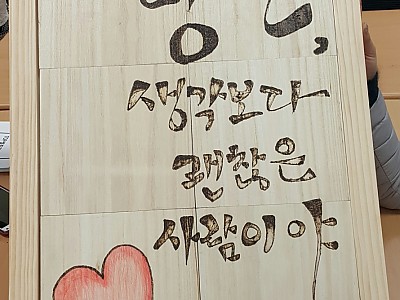 생각보다
괜찮은
사람이야